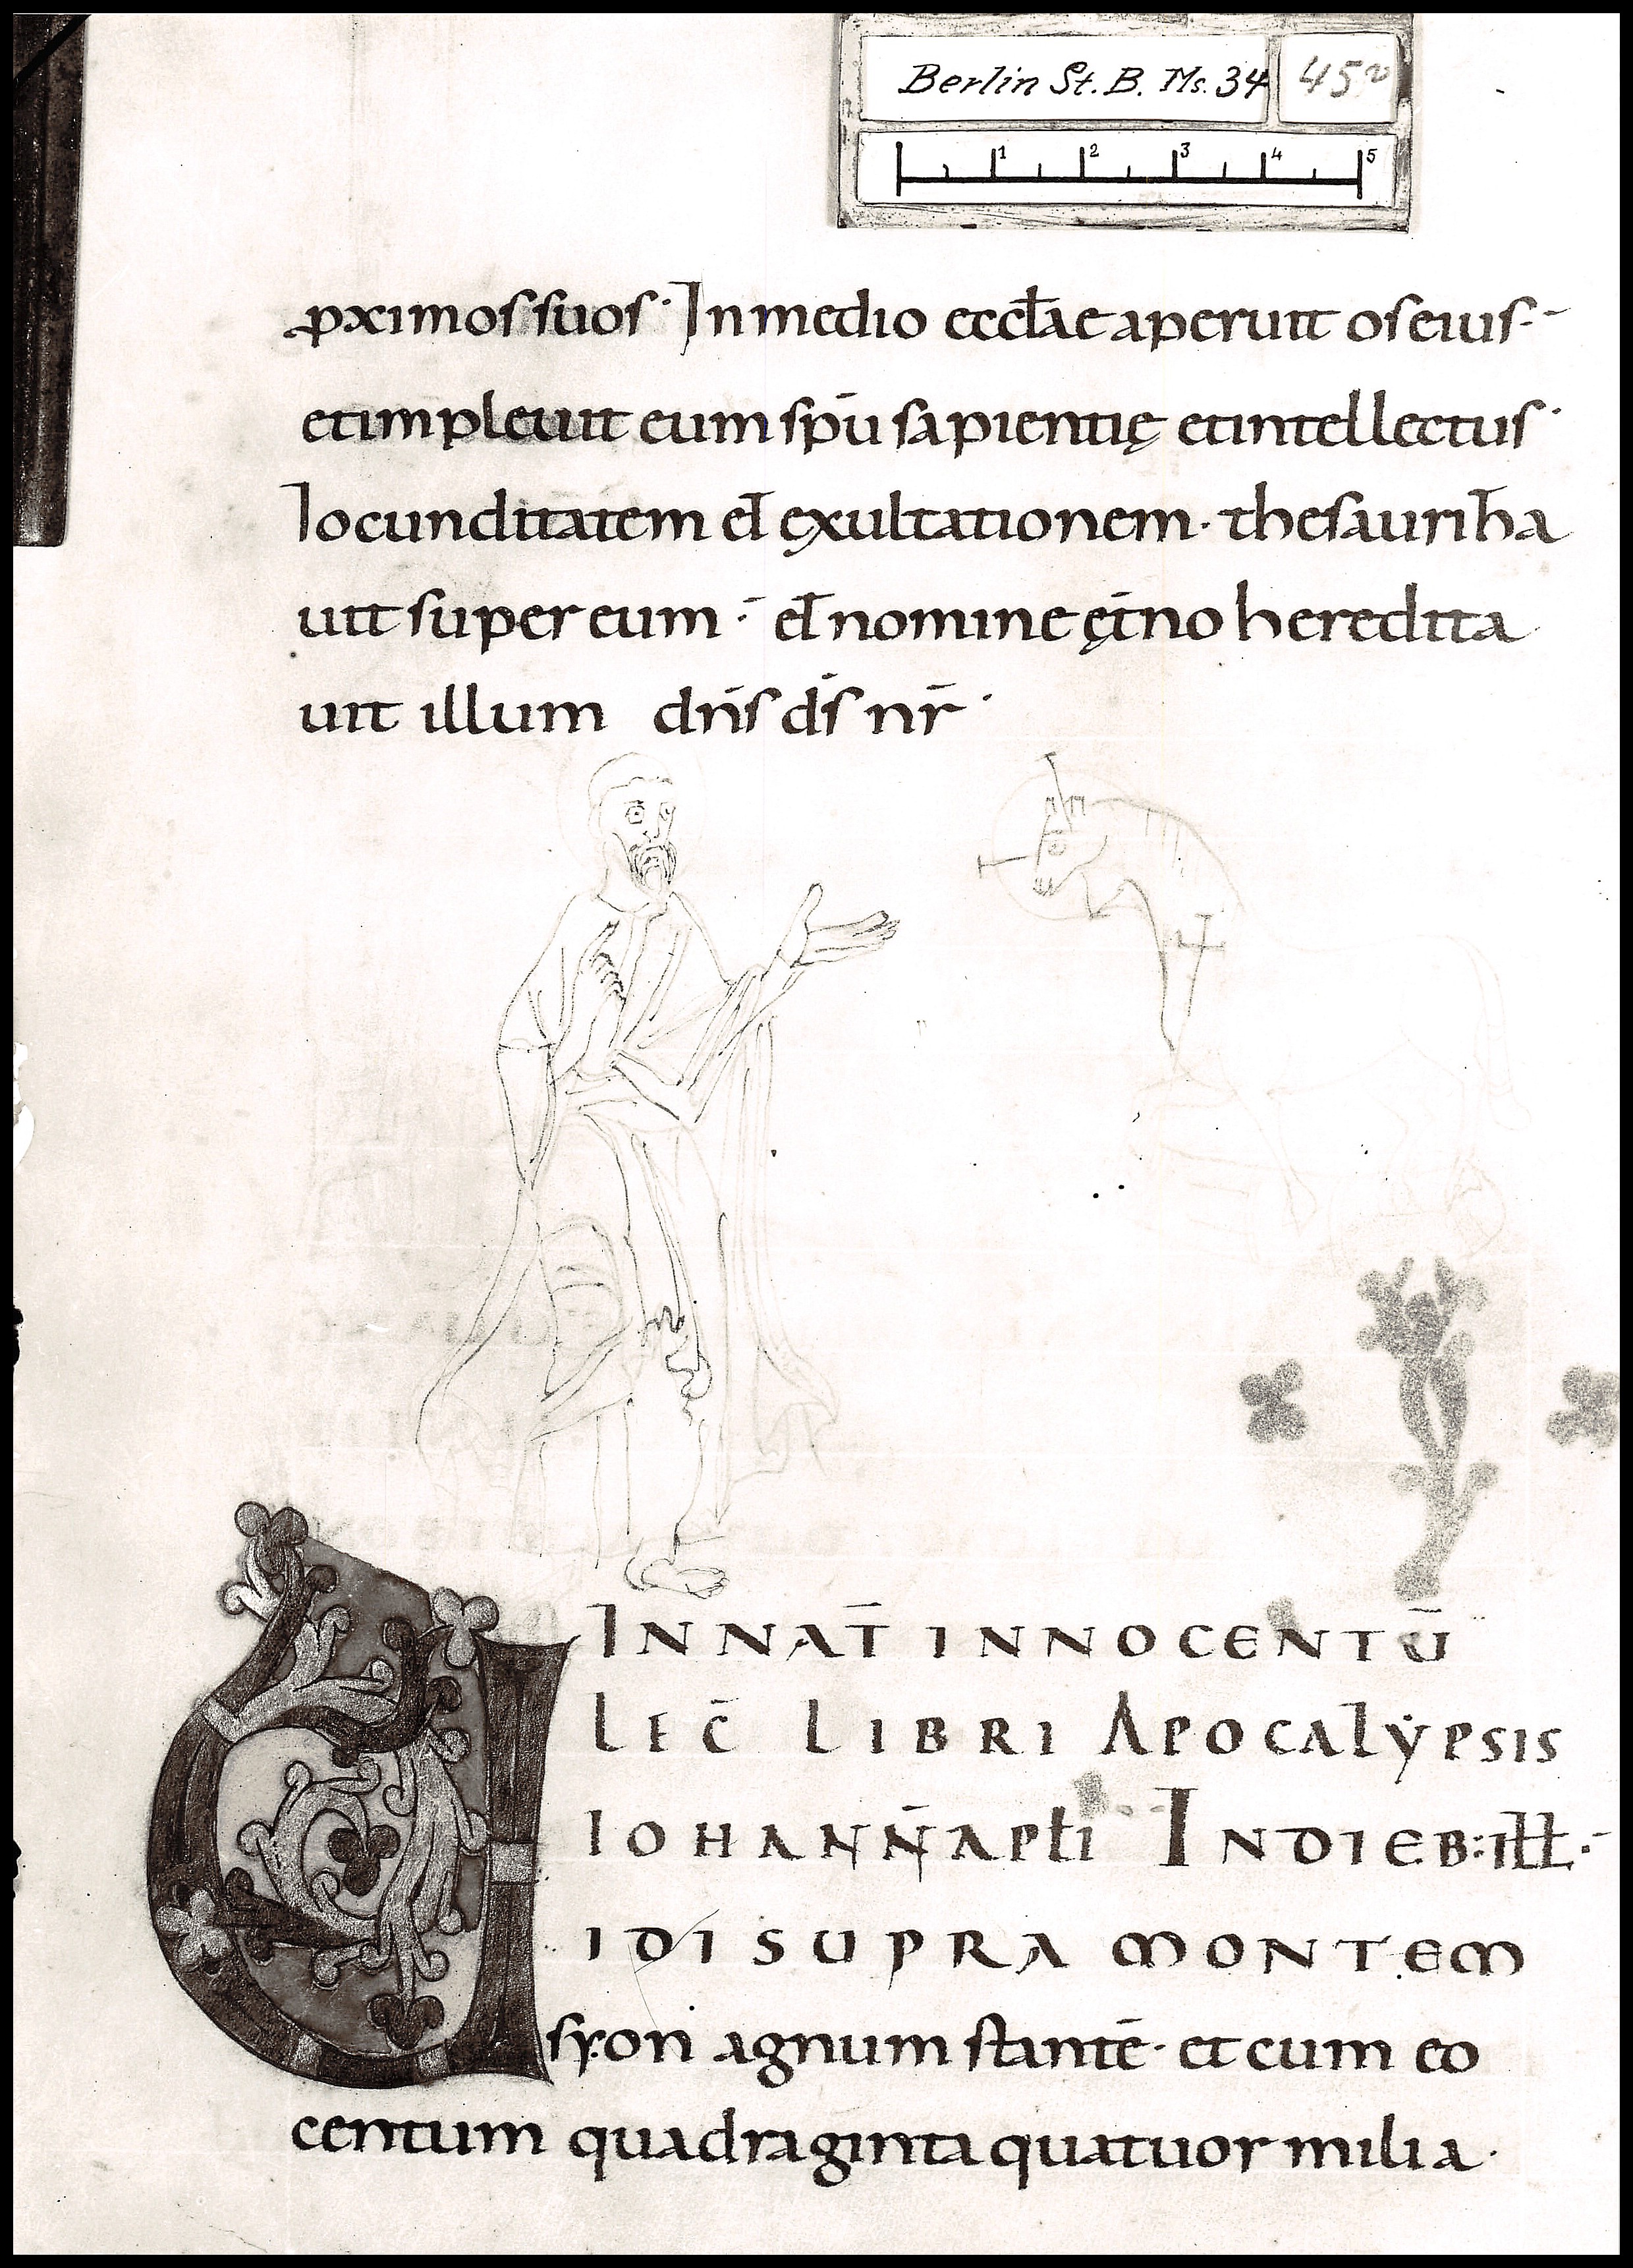 Berlin St. B. Ms. 34 45v
1 2 3 4 5
pximos suos· In medio eccłae aperuit os eius·-
et impleuit eum spū sapientię et intellectus·
Iocunditatem et̄ exultationem· thesauriħa
uit super eum·- et̄ nomine ęt̄no heredita
uit illum dn̄s ds̄ nr̄·
IN NAT̄ INNOCENTŪ
LEC̄ LIBRI APOCALẎPSIS
IOHANN̄ APŁI IN DIEB: IŁŁ·-
UIDI SUPRA MONTEM
sẏon agnum stantē· et cum eo
centum quadraginta quatuor milia·